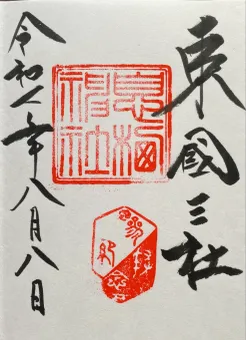 東國三社
息栖
神社
令和年八月八日